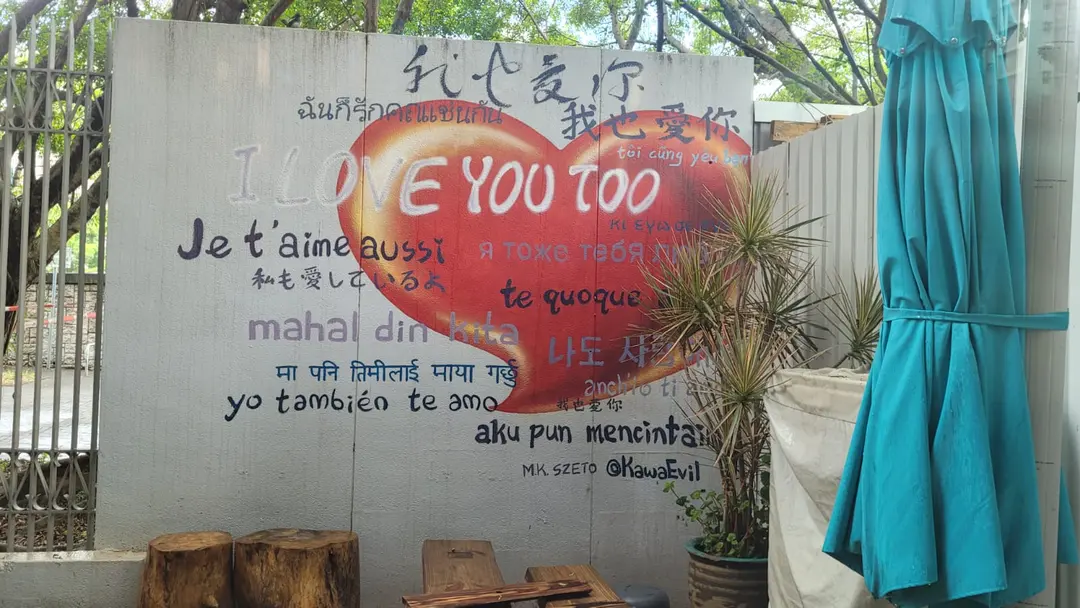 我也愛你
ฉันก็รักคุณเช่นกัน
我也愛你
tôi cũng yêu bạn
I LOVE YOU TOO
Je t'aime aussi
я тоже тебя
私も愛しているよ
te quoque
mahal din kita
나도
anch'io ti
मा पनि तिमीलाई माया गर्छु
yo también te amo
我也愛你
aku pun mencintai
M.K. SZETO @KawaEvil